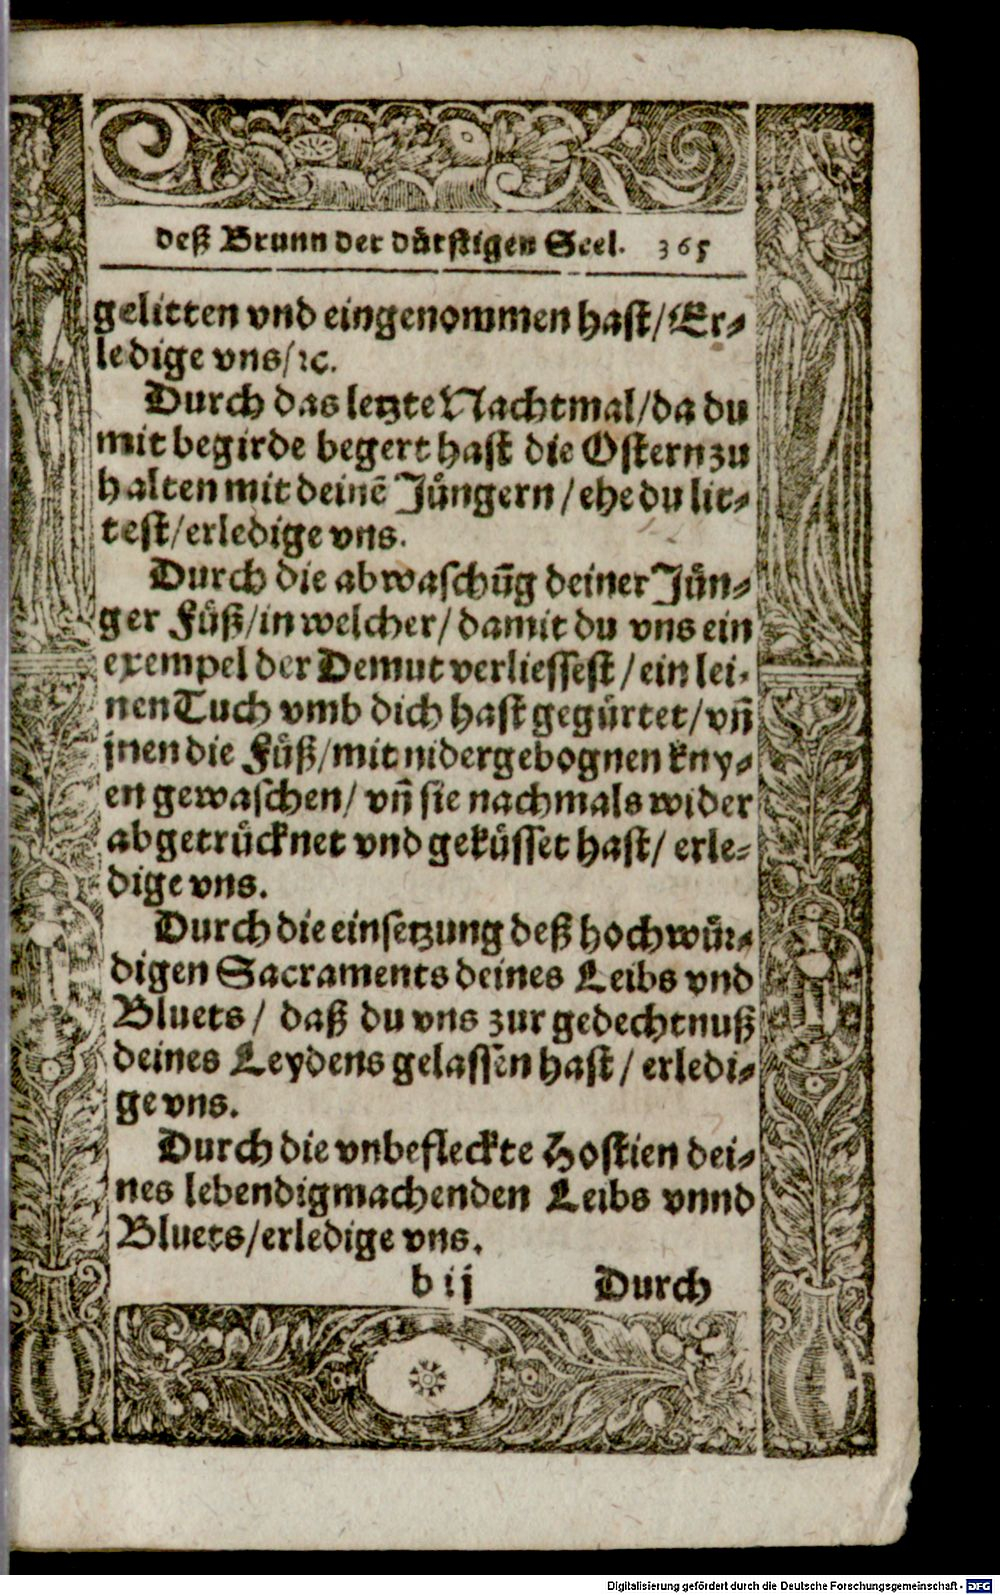 deß Brunn der dürstigen Seel. 365
gelitten vnd eingenommen hast/Er⸗
ledige vns/ꝛc.
Durch das letzte Nachtmal/da du
mit begirde begert hast die Ostern zu
halten mit deinē Jüngern/ehe du lit⸗
test/erledige vns.
Durch die abwaschūg deiner Jün⸗
ger Füß/in welcher/damit du vns ein
exempel der Demut verliessest/ein lei⸗
nen Tuch vmb dich hast gegürtet/vñ
jnen die Füß/mit nidergebognen kny⸗
en gewaschen/vñ sie nachmals wider
abgetrücknet vnd geküsset hast/erle⸗
dige vns.
Durch die einsetzung deß hochwür⸗
digen Sacraments deines Leibs vnd
Bluets/daß du vns zur gedechtnuß
deines Leydens gelassen hast/erledi⸗
ge vns.
Durch die vnbefleckte Hostien dei⸗
nes lebendigmachenden Leibs vnnd
Bluets/erledige vns.
b ij Durch
Digitalisierung gefördert durch die Deutsche Forschungsgemeinschaft - DFG